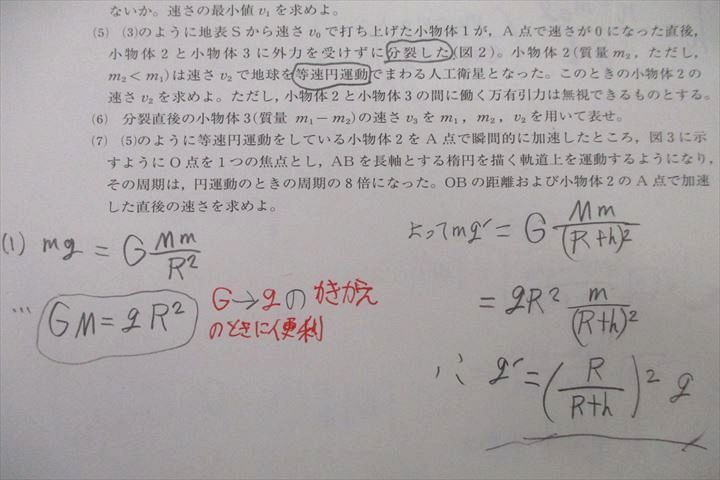 ないか。速さの最小値 v₁ を求めよ。
(5) (3)のように地表Sから速さ v₀ で打ち上げた小物体1が，A点で速さが0になった直後，
小物体2と小物体3に外力を受けずに分裂した(図2)。小物体2(質量 m₂，ただし，
m₂＜m₁)は速さ v₂ で地球を等速円運動でまわる人工衛星となった。このときの小物体2の
速さ v₂ を求めよ。ただし，小物体2と小物体3の間に働く万有引力は無視できるものとする。
(6) 分裂直後の小物体3(質量 m₁－m₂)の速さ v₃ を m₁，m₂，v₂ を用いて表せ。
(7) (5)のように等速円運動をしている小物体2をA点で瞬間的に加速したところ，図3に示
すようにO点を1つの焦点とし，ABを長軸とする楕円を描く軌道上を運動するようになり，
その周期は，円運動のときの周期の8倍になった。OBの距離および小物体2のA点で加速
した直後の速さを求めよ。
(1) mg = G Mm/R²
… GM = gR²
G→gの かきかえ
のときに便利
よって mg' = G Mm/(R+h)²
= gR² m/(R+h)²
∴ g' = (R/(R+h))² g